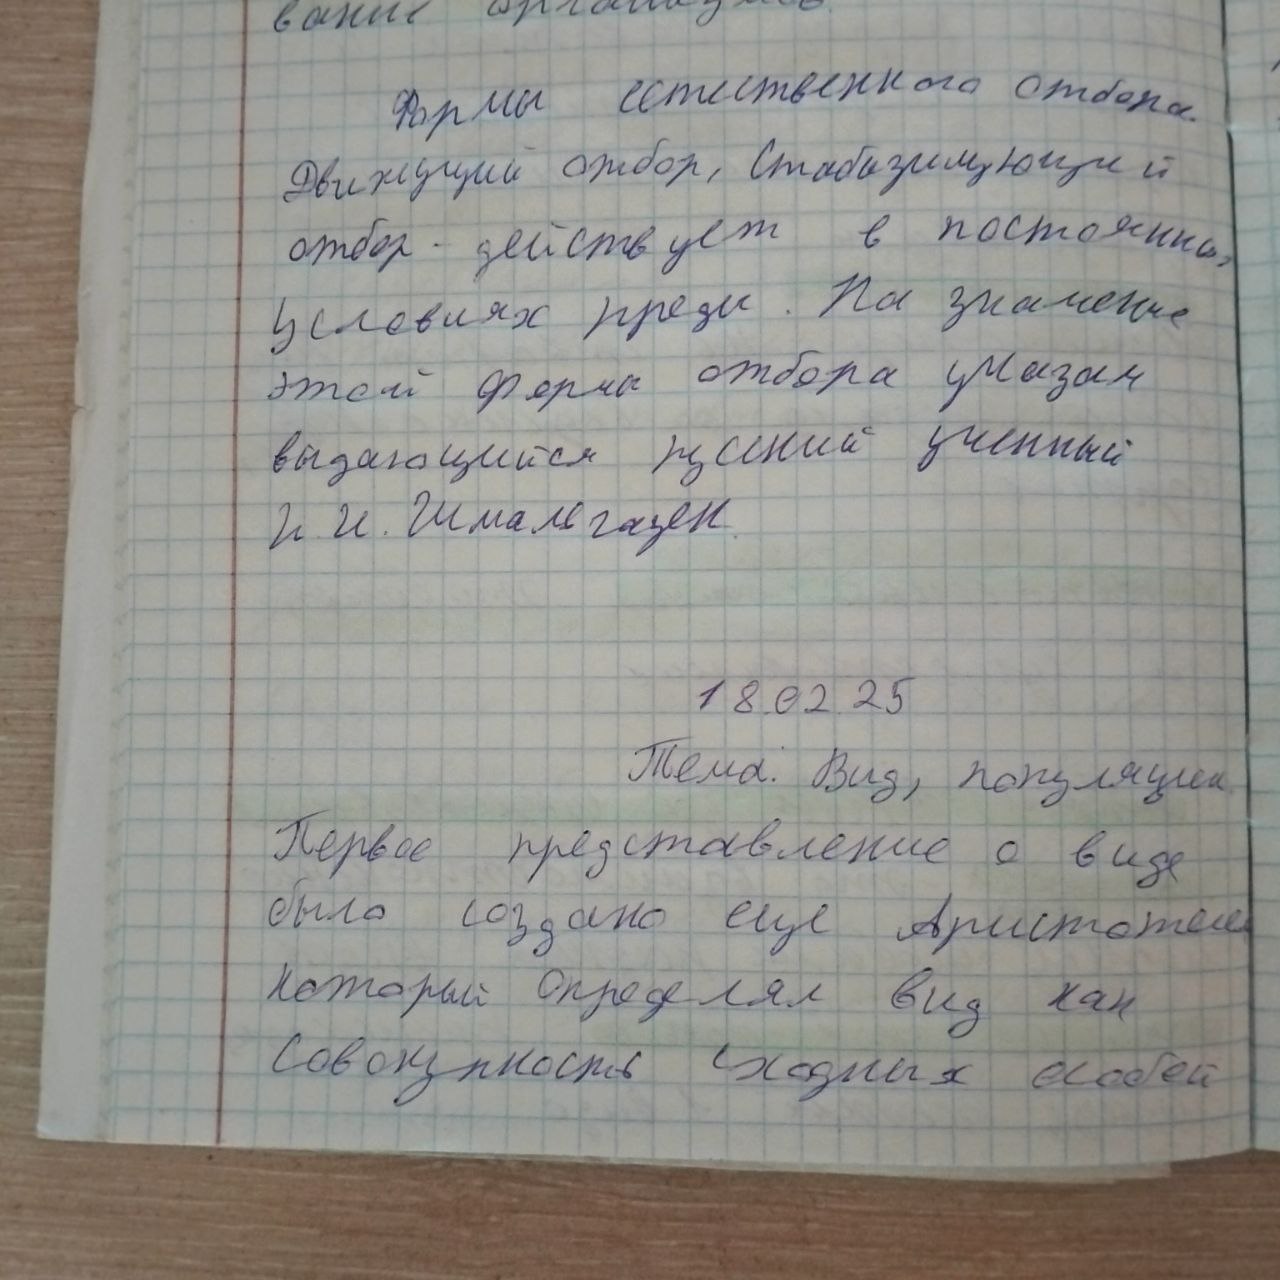 вание организмов
Формы естественного отбора.
Движущий отбор, Стабизимцующий
отбор - действует в постоянны,
условиях среды. На значение
этой формы отбора указал
выдающийся русский ученный
И. И. Шмальгаузен.
18.02.25
Тема: Вид, популяции.
Первое представление о виде
было создано еще Аристотелем
который определял вид как
Совокупность сходных особей